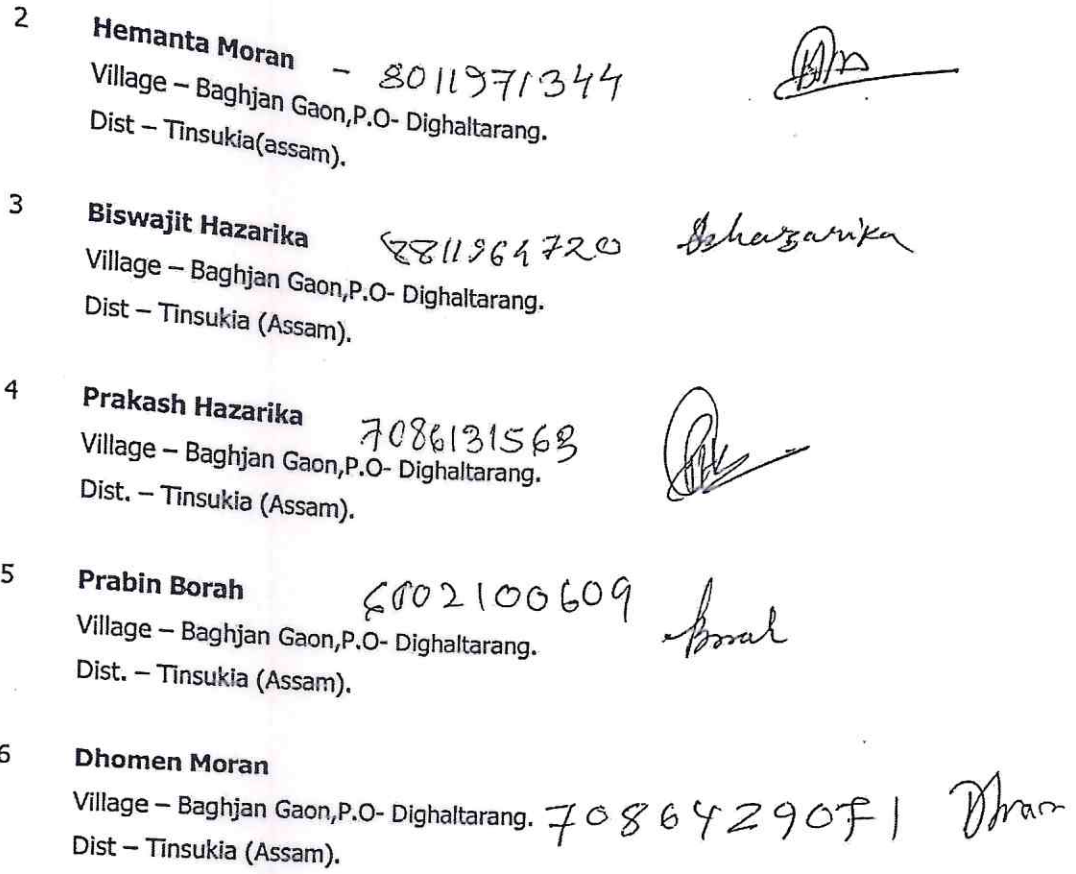 2 Hemanta Moran - 8011971344
Village – Baghjan Gaon,P.O- Dighaltarang.
Dist – Tinsukia(assam).
3 Biswajit Hazarika Bhazarika
Village – Baghjan Gaon,P.O- Dighaltarang.
Dist – Tinsukia (Assam).
4 Prakash Hazarika 7086131563
Village – Baghjan Gaon,P.O- Dighaltarang.
Dist. – Tinsukia (Assam).
5 Prabin Borah 6002100609 Borah
Village – Baghjan Gaon,P.O- Dighaltarang.
Dist. – Tinsukia (Assam).
6 Dhomen Moran
Village – Baghjan Gaon,P.O- Dighaltarang. 7086429071
Dist – Tinsukia (Assam).